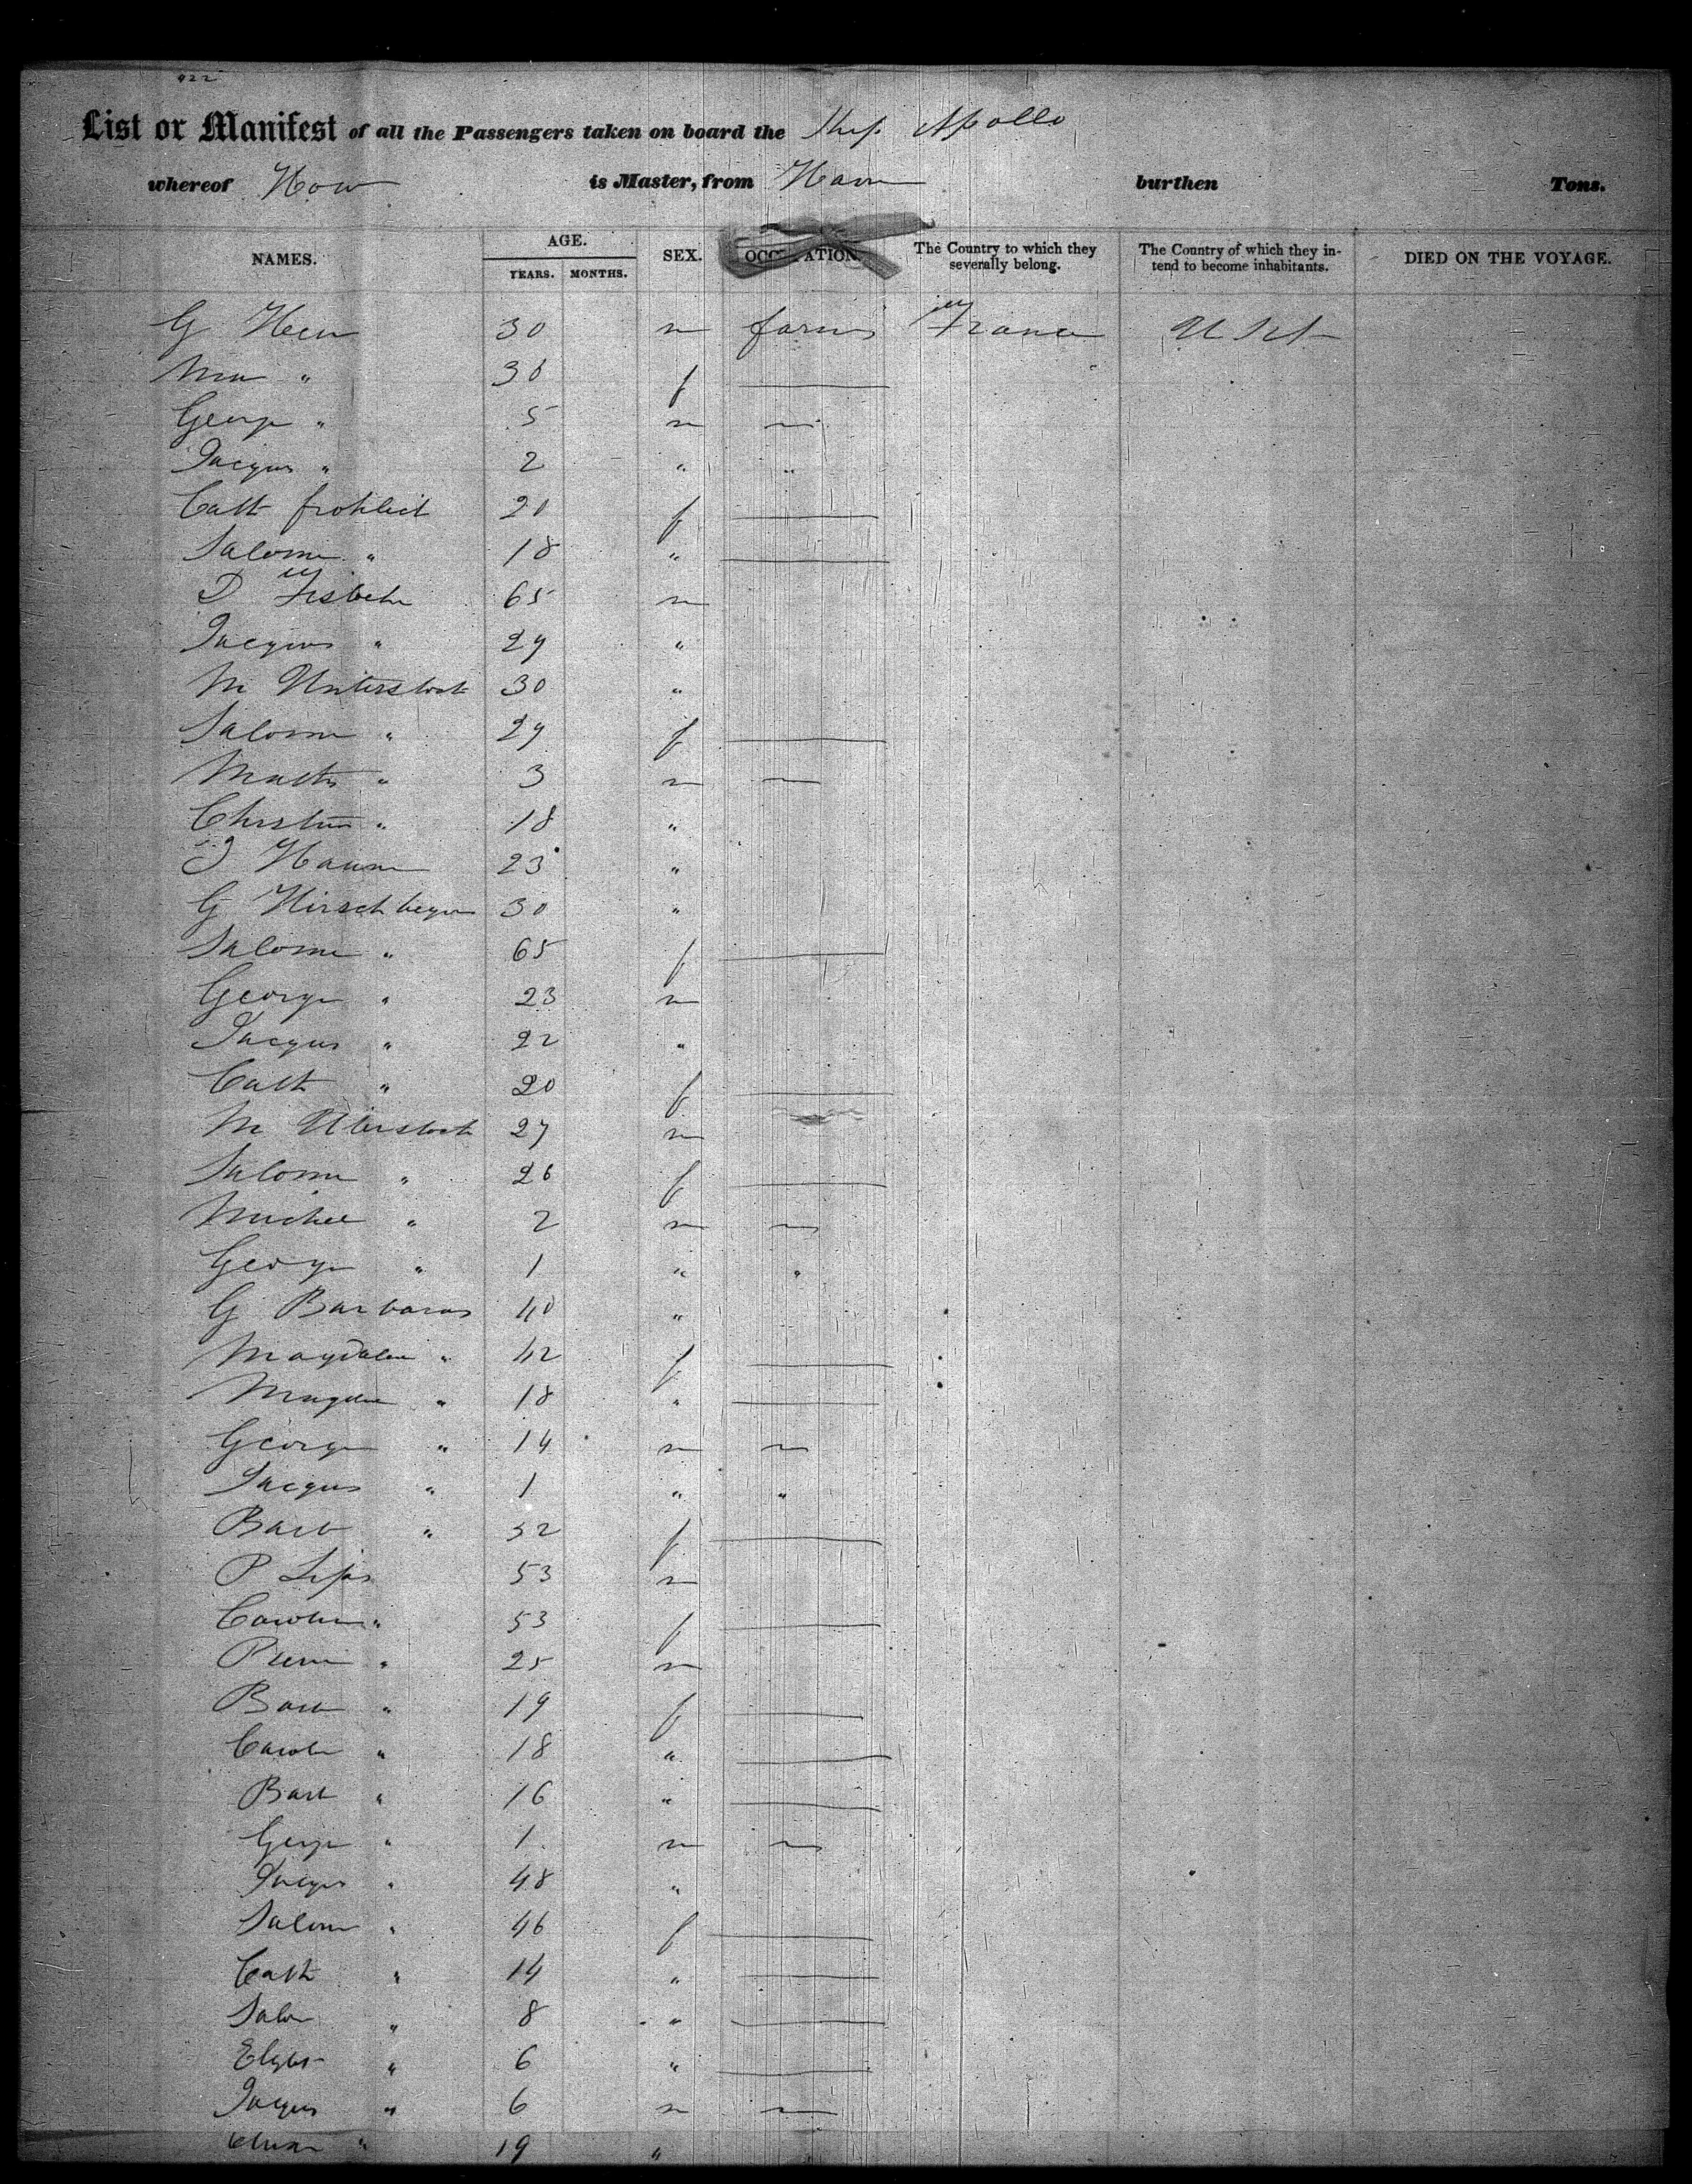 422
List or Manifest of all the Passengers taken on board the Ship Apollo
whereof How is Master, from Havre burthen Tons.
NAMES. AGE. YEARS. MONTHS. SEX. OCCUPATION. The Country to which they severally belong. The Country of which they intend to become inhabitants. DIED ON THE VOYAGE.
G 30 m farms France U St
" 36 f
George " 5 m
Jacques " 2 " "
Cath frohlich 20 f
Salome " 18 "
D 65 m
Jacques " 29 "
M Unterstock 30 "
Salome " 29 f
Math " 3 m
Christian " 18 "
23 "
G 30 "
Salome " 65 f
George " 23 m
Jacques " 22 "
Cath " 20 f
M Uberstock 27 m
Salome " 26 f
Michel " 2 m
George " 1 " "
G Barbaras 40 "
Magdalen " 42 f
Magdn " 18 "
George " 14 m
Jacques " 1 " "
Barb " 52 f
P Lips 53 m
Carolin " 53 f
Pierre " 25 m
Barb " 19 f
Carolin " 18 "
Barb " 16 "
George " 1 m
Jacques " 48 "
Salome " 46 f
Cath " 14 "
Salom " 8 "
Elisbt " 6 "
Jacques " 6 m
" 19 "